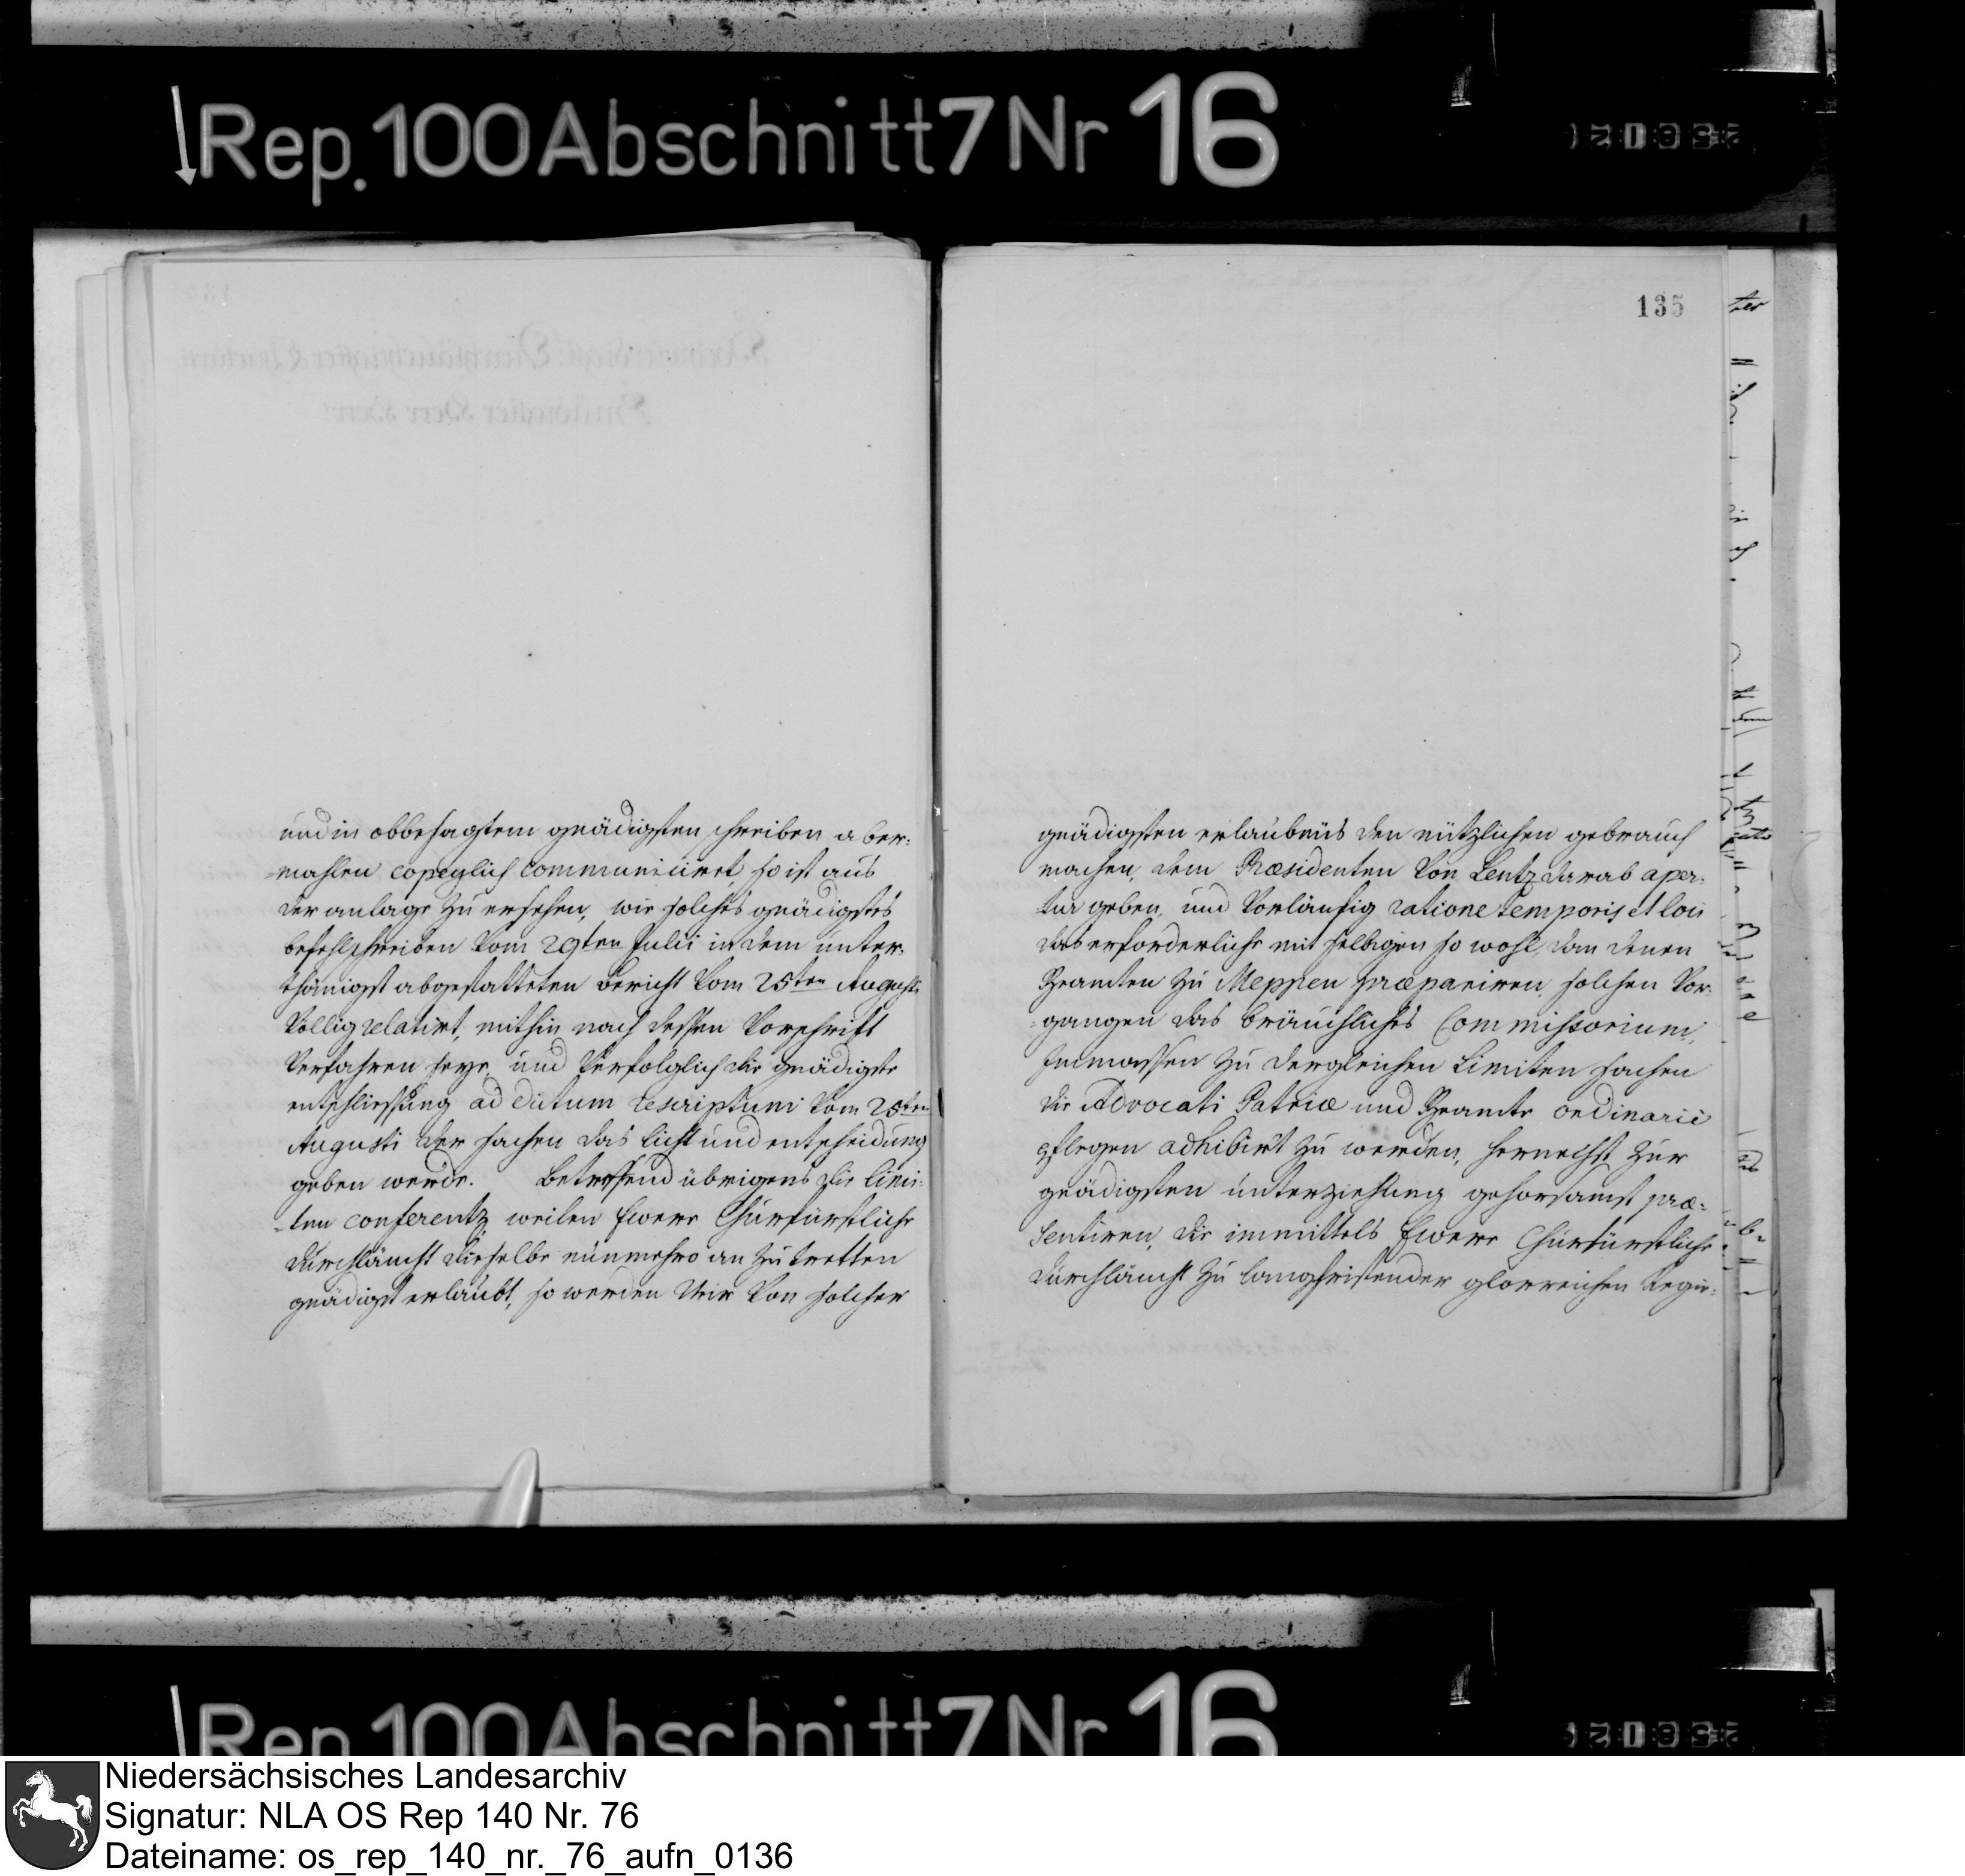 Rep. 100 Abschnitt 7 Nr 16
und in obbesagtem gnädigsten schreiben aber-
-mahlen copeylich communiciret, so ist aus
der anlage zu ersehen, wie solches gnädigstes
befehlschreiben vom 29ten Julii in dem unter-
thänigst abgestatteten bericht vom 25ten Augusti
völlig relatirt, mithin nach dessen Vorschrift
verfahren seye, und verfolglich die gnädigste
entschliessung ad dictum rescriptum vom 25ten
Augusti der sachen das licht und entscheidung
geben werde. Betreffend übrigens die limi-
-ten conferentz weilen Ewere Churfürstliche
Durchläucht dieselbe nunmehro an zu tretten
gnädigst erlaubt, so werden Wir von solcher
135
gnädigsten erlaubnüs den nützlichen gebrauch
machen, dem Præsidenten von Lentz darab aper-
-tur geben, und vorläufig ratione temporis et loci
das erforderliche mit selbigen so wohl, dan denen
Beamten zu Meppen præpariren, solchen vor-
-gangen das bräuchliches Commissorium,
Inmassen zu dergleichen Limiten sachen
die Advocati Patriæ und Beamte ordinarie
pflegen adhibirt zu werden, hernechst zur
gnädigsten unterziehung gehorsamst præ-
sentiren, die immittels Ewere Churfürstliche
Durchläucht zu langfristender glorreichen Regie-
Rep. 100 Abschnitt 7 Nr 16
Niedersächsisches Landesarchiv
Signatur: NLA OS Rep 140 Nr. 76
Dateiname: os_rep_140_nr._76_aufn_0136